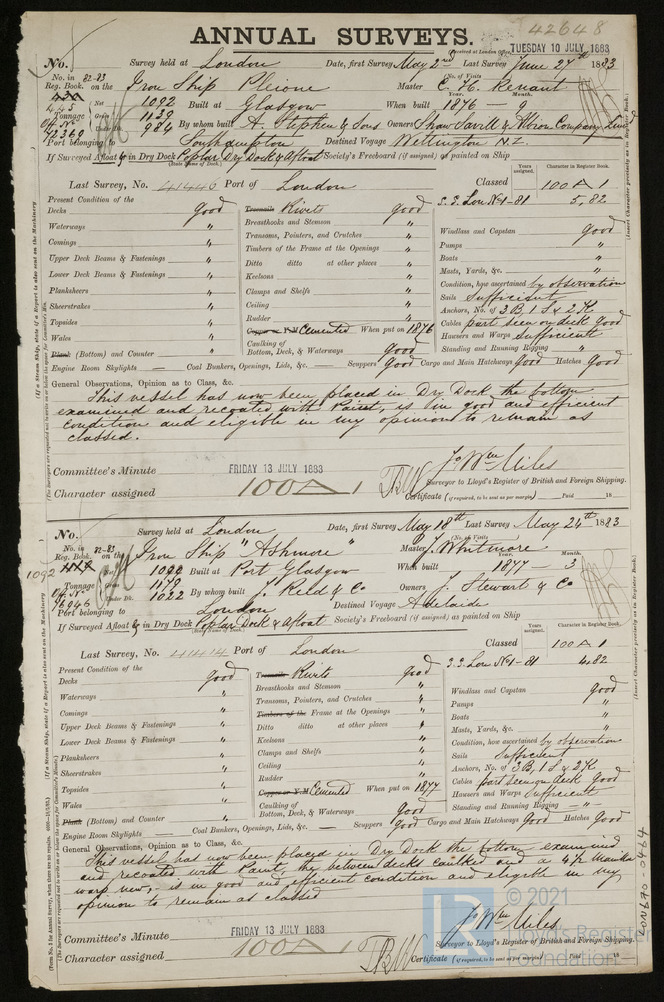 42648
ANNUAL SURVEYS.
(Received at London Office, TUESDAY 10 JULY 1883
No. Survey held at London Date, first Survey May 2nd Last Survey June 27th 1883
No. in Reg. Book. 82-83 on the Iron Ship Pleione Master E. H. Renaut
(No. of Visits
Net 1092 Built at Glasgow When built Year. 1876 Month. 9
Tonnage Gross 1139
Under Dk. 984 By whom built A. Stephen & Sons Owners Shaw Savill & Albion Company Limd
Off. No. 72369
Port belonging to Southampton Destined Voyage Wellington N.Z.
If Surveyed Afloat & in Dry Dock Poplar Dry Dock & Afloat Society's Freeboard (if assigned) as painted on Ship
(State Name of Dock.)
Last Survey, No. 41446 Port of London Classed Years assigned. Character in Register Book. 100A1
S.S. Lon No1-81 5,82
Present Condition of the
Decks Good
Waterways "
Comings "
Upper Deck Beams & Fastenings "
Lower Deck Beams & Fastenings "
Planksheers "
Sheerstrakes "
Topsides "
Wales "
Plank (Bottom) and Counter "
Engine Room Skylights — Coal Bunkers, Openings, Lids, &c. — Scuppers Good Cargo and Main Hatchways Good Hatches Good
Treenails Rivets Good
Breasthooks and Stemson "
Transoms, Pointers, and Crutches "
Timbers of the Frame at the Openings "
Ditto ditto at other places "
Keelsons "
Clamps and Shelfs "
Ceiling "
Rudder "
Copper or Y.M Cemented When put on 1876
Caulking of Bottom, Deck, & Waterways Good
Windlass and Capstan Good
Pumps "
Boats "
Masts, Yards, &c. "
Condition, how ascertained by observation
Sails Sufficient
Anchors, No. of 3 B, 1 S & 2 K
Cables part seen on deck Good
Hawsers and Warps Sufficient
Standing and Running Rigging "
General Observations, Opinion as to Class, &c.
This vessel has now been placed in Dry Dock the bottom
examined and recoated with Paint, is in good and efficient
condition and eligible in my opinion to remain as
classed.
Jo Wm Miles
Surveyor to Lloyd's Register of British and Foreign Shipping.
Committee's Minute FRIDAY 13 JULY 1883
Character assigned 100A1
Certificate (if required, to be sent as per margin) Paid 18
No. Survey held at London Date, first Survey May 18th Last Survey May 24th 1883
No. in Reg. Book. 82-83 on the Iron Ship "Ashmore" Master J. Whitmore
(No. of Visits
1092
Net 1099 Built at Port Glasgow When built Year. 1877 Month. 3
Tonnage Gross 1179
Under Dk. 1022 By whom built J. Reid & Co Owners J. Stewart & Co
Off. No. 76046
Port belonging to London Destined Voyage Adelaide
If Surveyed Afloat & in Dry Dock Poplar Dock & Afloat Society's Freeboard (if assigned) as painted on Ship
(State Name of Dock.)
Last Survey, No. 41414 Port of London Classed Years assigned. Character in Register Book. 100A1
S.S. Lon No1-81 4,82
Present Condition of the
Decks Good
Waterways "
Comings "
Upper Deck Beams & Fastenings "
Lower Deck Beams & Fastenings "
Planksheers "
Sheerstrakes "
Topsides "
Wales "
Plank (Bottom) and Counter "
Engine Room Skylights — Coal Bunkers, Openings, Lids, &c. — Scuppers Good Cargo and Main Hatchways Good Hatches Good
Treenails Rivets Good
Breasthooks and Stemson "
Transoms, Pointers, and Crutches "
Timbers of the Frame at the Openings "
Ditto ditto at other places "
Keelsons "
Clamps and Shelfs "
Ceiling "
Rudder "
Copper or Y.M Cemented When put on 1877
Caulking of Bottom, Deck, & Waterways Good
Windlass and Capstan Good
Pumps "
Boats "
Masts, Yards, &c. "
Condition, how ascertained by observation
Sails Sufficient
Anchors, No. of 3 B, 1 S & 2 K
Cables part seen on deck Good
Hawsers and Warps Sufficient
Standing and Running Rigging "
General Observations, Opinion as to Class, &c.
This vessel has now been placed in Dry Dock the bottom examined
and recoated with Paint, the between decks caulked and a 4½ Manilla
warp new, - is in good and efficient condition and eligible in my
opinion to remain as classed
Jo Wm Miles
Surveyor to Lloyd's Register of British and Foreign Shipping.
Committee's Minute FRIDAY 13 JULY 1883
Character assigned 100A1
Certificate (if required, to be sent as per margin) Paid 18
LON670-0464
© 2021
Lloyd's Register
Foundation